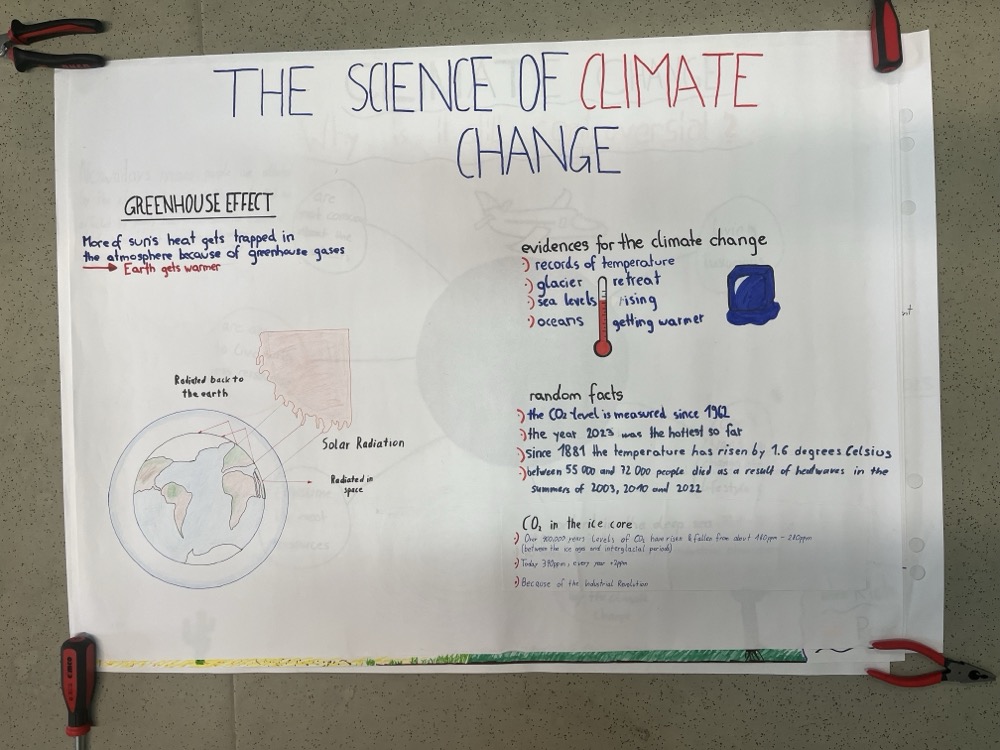 THE SCIENCE OF CLIMATE
CHANGE
GREENHOUSE EFFECT
More of sun's heat gets trapped in
the atmosphere because of greenhouse gases
Earth gets warmer
Radiated back to
the earth
Solar Radiation
Radiated in
space
evidences for the climate change
records of temperature
glacier retreat
sea levels rising
oceans getting warmer
random facts
the CO2 level is measured since 1962
the year 2023 was the hottest so far
since 1881 the temperature has risen by 1.6 degrees Celsius
between 55 000 and 72 000 people died as a result of heatwaves in the
summers of 2003, 2010 and 2022
CO2 in the ice core
Over years levels of CO2 have risen & fallen from about 180ppm - 280ppm
(between the ice ages and interglacial periods)
Today 390ppm, every year +2ppm
Because of the Industrial Revolution